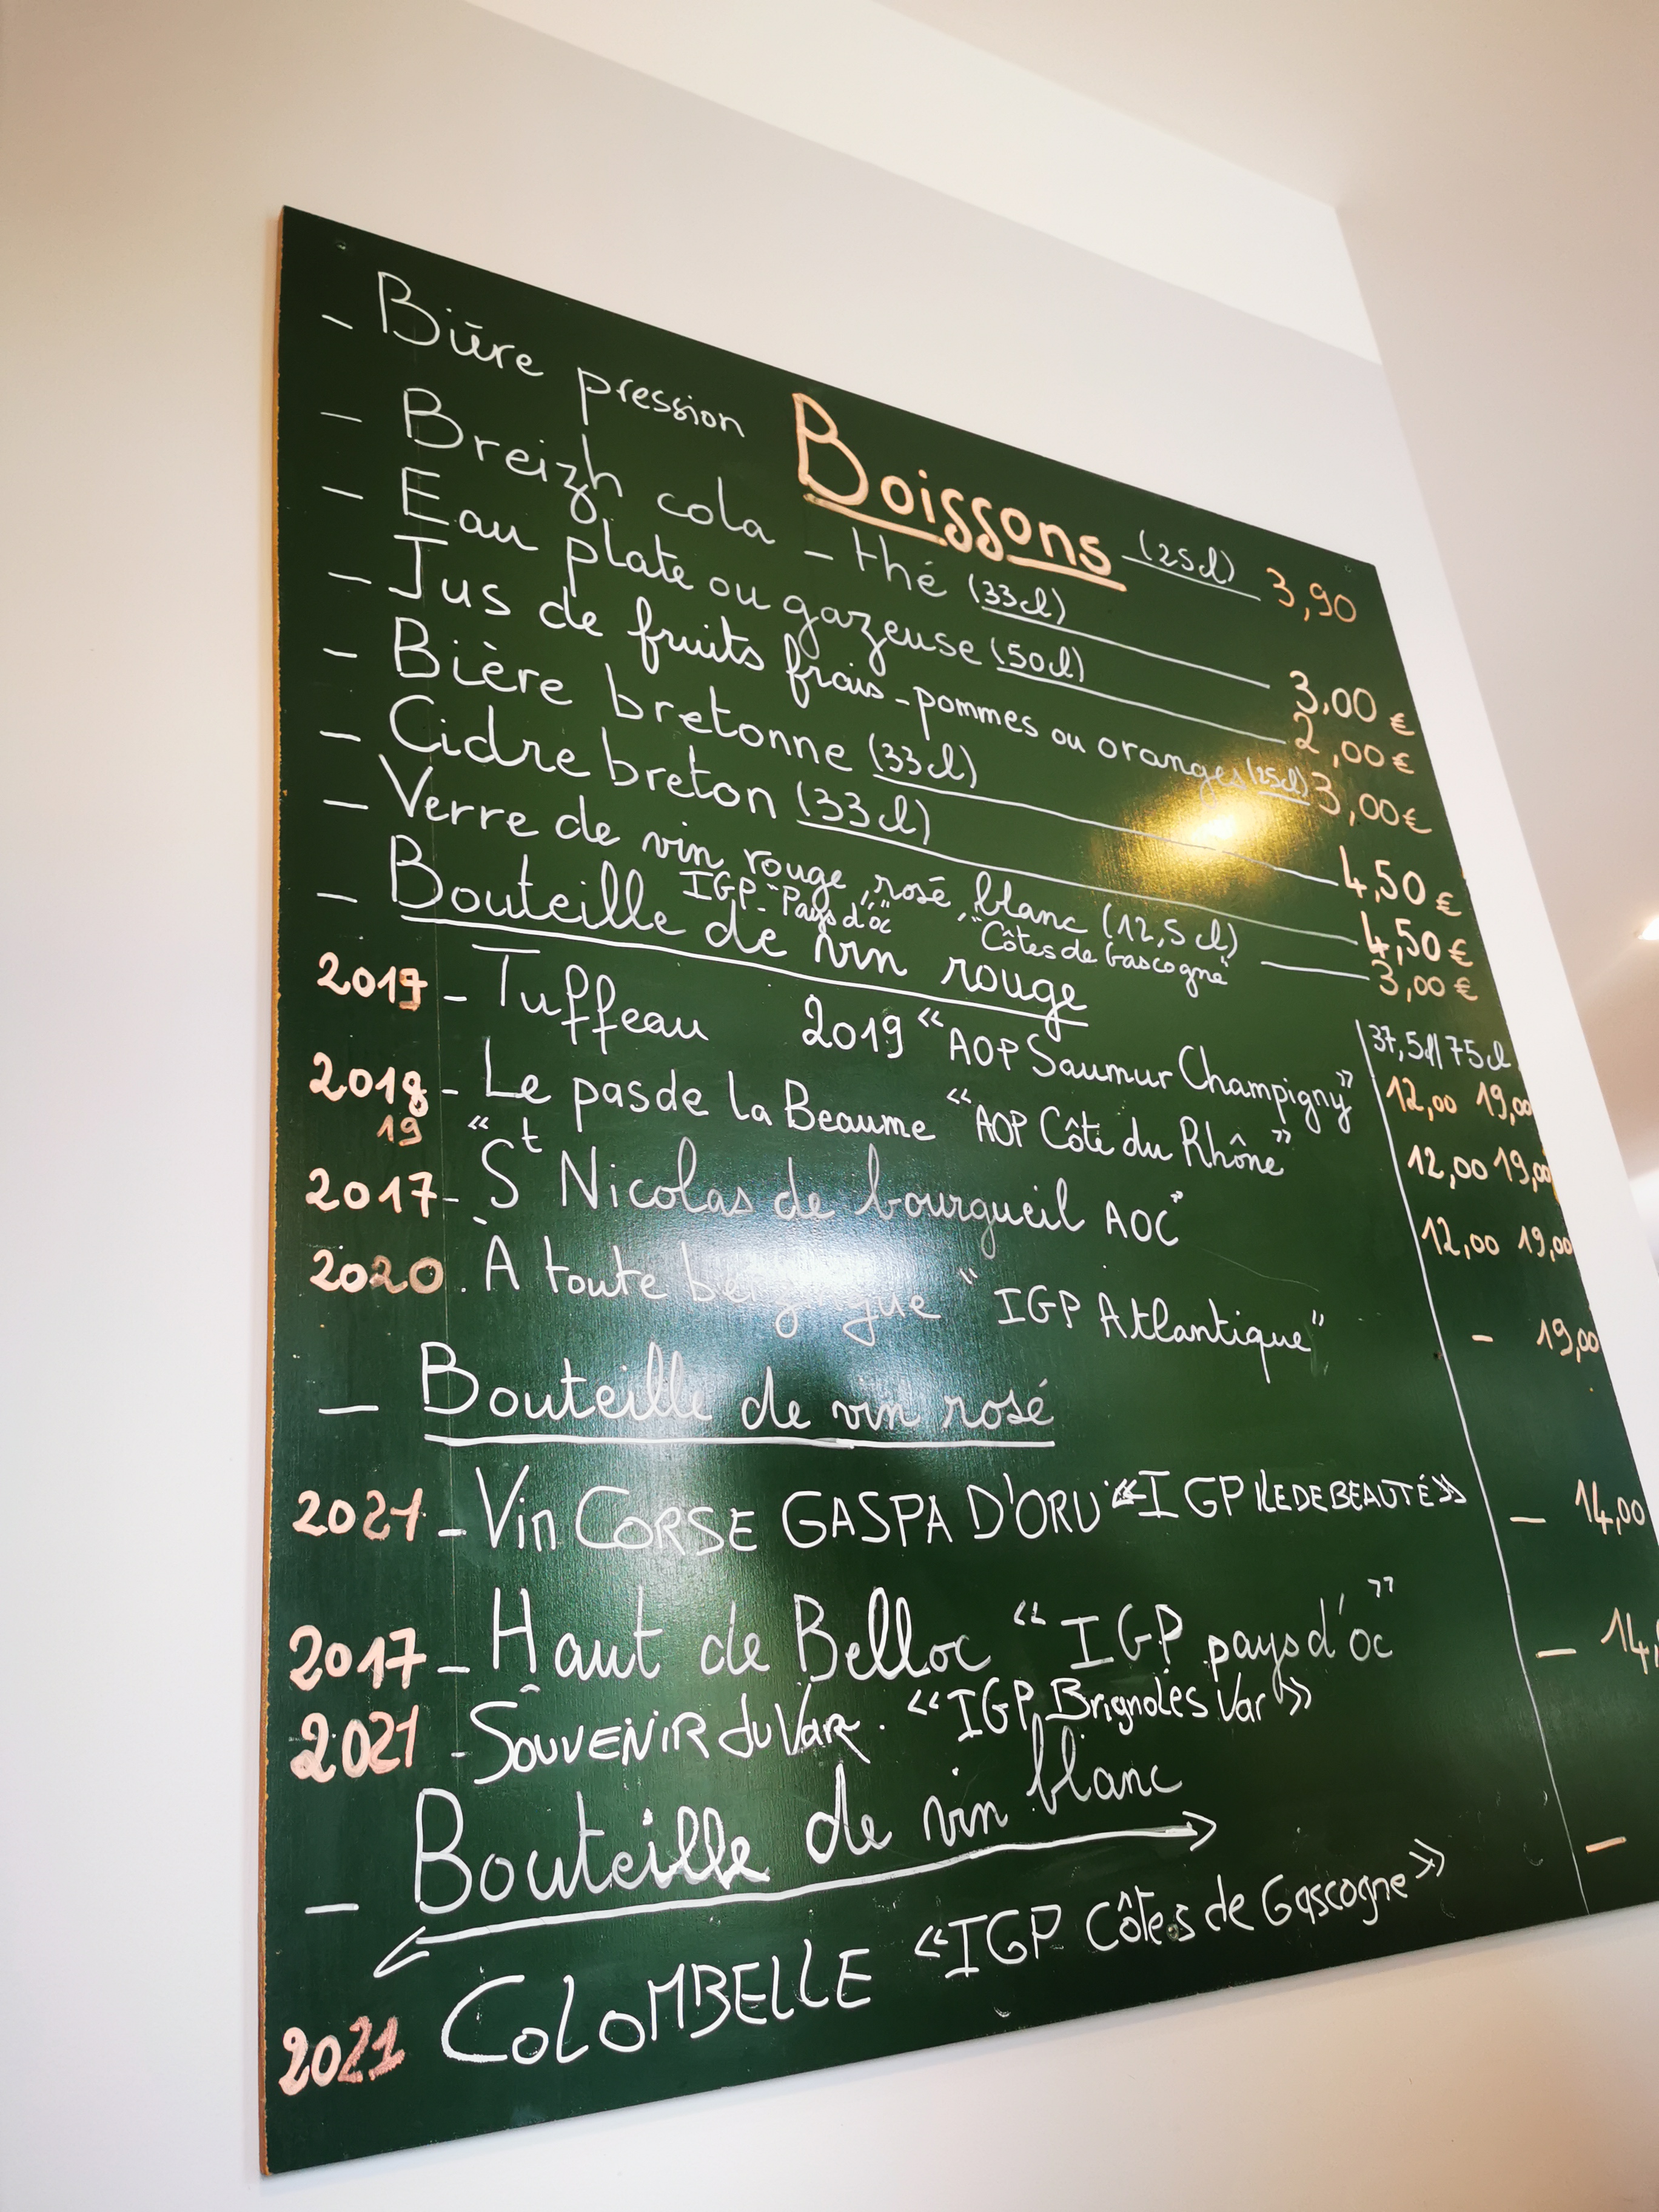 Boissons
- Bière pression (25cl) 3,90
- Breizh cola - thé (33cl) 3,00 €
- Eau plate ou gazeuse (50cl) 2,00 €
- Jus de fruits frais - pommes ou oranges (25cl) 3,00 €
- Bière bretonne (33cl) 4,50 €
- Cidre breton (33cl) 4,50 €
- Verre de vin rouge, rosé, blanc (12,5 cl) 3,00 €
IGP - "Pays d'oc" "Côtes de Gascogne"
- Bouteille de vin rouge 37,5cl 75cl
2017 - Tuffeau 2019 "AOP Saumur Champigny" 12,00 19,00
2018 - Le pas de la Beaume "AOP Côte du Rhône" 12,00 19,00
19
2017 - "St Nicolas de bourgueil AOC" 12,00 19,00
2020 . À toute "IGP Atlantique" - 19,00
- Bouteille de vin rosé
2021 - Vin CORSE GASPA D'ORU "IGP ILE DE BEAUTÉ" - 14,00
2017 - Haut de Belloc "IGP pays d'oc" - 14,
2021 - SOUVENIR du VAR . «IGP Brignoles Var»
- Bouteille de vin blanc -
2021 COLOMBELLE «IGP Côtes de Gascogne»